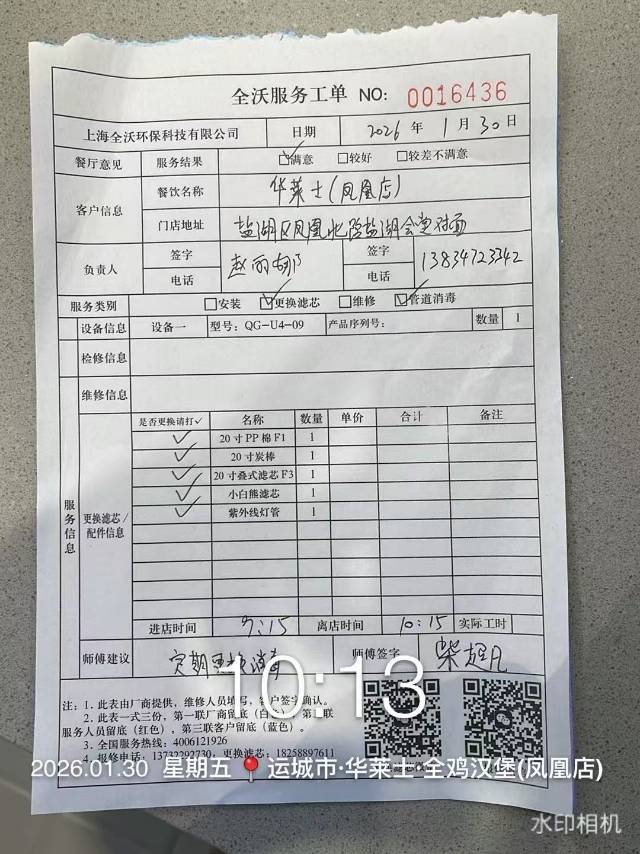 全沃服务工单 NO: 0016436
上海全沃环保科技有限公司 日期 2026 年 1 月 30 日
餐厅意见 服务结果 ☑满意 □较好 □较差不满意
客户信息 餐饮名称 华莱士(凤凰店)
门店地址 盐湖区凤凰北路盐湖会堂对面
负责人 签字 赵丽娜 签字
电话 电话 13834723342
服务类别 □安装 ☑更换滤芯 □维修 ☑管道消毒
设备信息 设备一 型号: QG-U4-09 产品序列号: 数量 1
检修信息
维修信息
服务信息 更换滤芯/配件信息
是否更换请打✓ 名称 数量 单价 合计 备注
✓ 20寸PP棉F1 1
✓ 20寸炭棒 1
✓ 20寸叠式滤芯F3 1
✓ 小白熊滤芯 1
✓ 紫外线灯管 1
进店时间 9:15 离店时间 10:15 实际工时
师傅建议 定期更换消毒 师傅签字
10:13
注: 1. 此表由厂商提供，维修人员填写，客户签字确认。
2. 此表一式三份，第一联厂商留底(白色)，第二联
服务人员留底(红色)，第三联客户留底(蓝色)。
3. 全国服务热线: 4006121926
4. 报修电话: 13732292730, 更换滤芯: 18258897611
2026.01.30 星期五 运城市·华莱士·全鸡汉堡(凤凰店)
水印相机